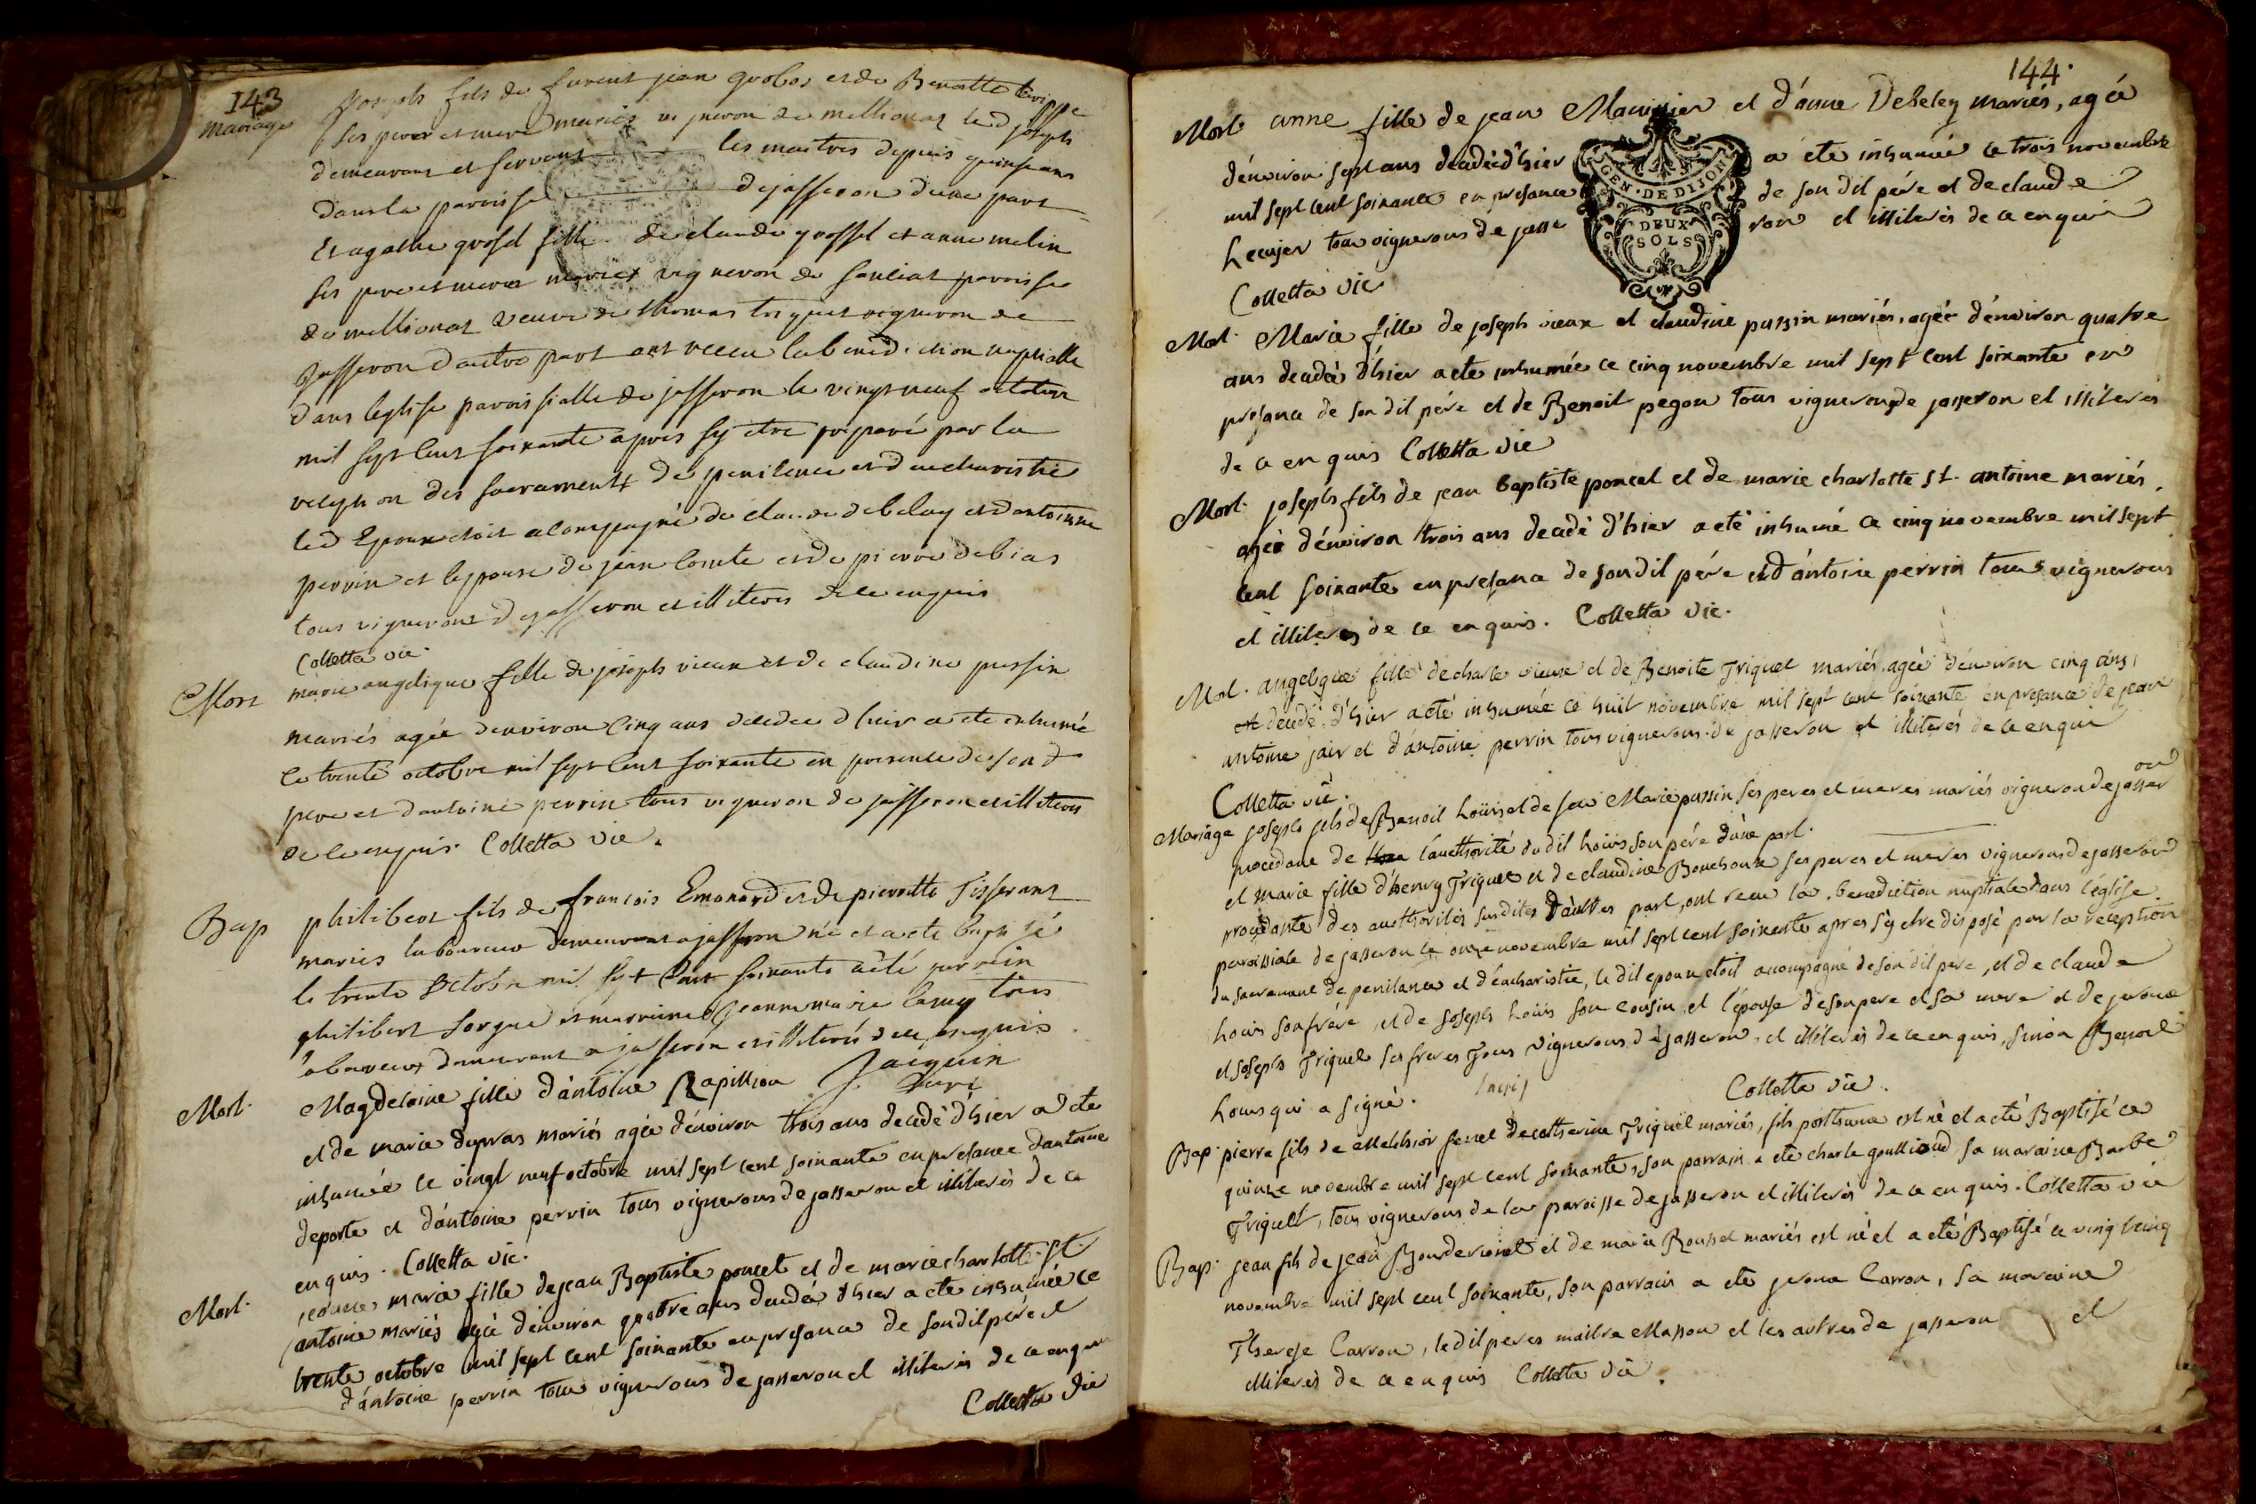 143
mariage
joseph fils de furent jean grobos et de Benoitte
ses pere et mere mariés vigneron de meillonas led joseph
demeurant et servant les maitres depuis quinse ans
dans la paroisse de jasseron dune part
Et agathe grosel fille de claude grossel et anne melin
ses pere et mere mariés vigneron de sanciat paroisse
de meillonas veuve de thomas triquet vigneron de
jasseron dautre part ont receu la benediction nuptialle
dans leglise paroissialle de jasseron le vingt neuf octobre
mil sept cent soixante apres sy etre preparé par la
reception des sacrements de penitence et deucharistie
led Epoux etoit acompagné de claude debelay et dantoinne
perrin et lepouse de jean comte et de pierre debias
tous vignerons de jasseron et illiteres de ce enquis
Colletta vic.
Mort marie angelique fille de joseph vieux et de claudine pussin
mariés agée denviron cinq ans decedee d hier a ete inhumé
le trente octobre mil sept cent soixante en presence de son d
pere et dantoine perrin tous vigneron de jasseron et illiteres
de ce enquis. Colletta vic.
Bap philibert fils de francois Emonard et de pierrette tisserant
mariés laboureur demeurant a jasseron né et a ete baptisé
le trente octobre mil sept cent soixante a été parrein
philibert sorgue et marreine jeanne marie lamy tous
laboureurs demeurant a jasseron et illiterés de ce enquis
Jacquin
Mort. Magdelaine fille d'antoine Rapillion
et de marie dupras mariés agée d'environ trois ans decedé d'hier a ete
inhumée ce vingt neuf octobre mil sept cent soixante en presance dantoine
deporte et d'antoine perrin tous vignerons de jasseron et illiterés de ce
enquis. Colletta vic.
Mort. jeanne marie fille de jean Baptiste poncet et de marie charlotte St.
antoine mariés agée d'environ quatre ans decedée d'hier a ete inhumée ce
trente octobre mil sept cent soixante en presance de son dit pere et
d'antoine perrin tous vignerons de jasseron et illiterés de ce enquis
Colletta vic
144.
Mort anne fille de jean Mauinier et d'anne Debeley mariés, agée
d'environ sept ans decedé d'hier a ete inhumée ce trois novembre
mil sept cent soixante en presance de son dit pére et de claude
hecujer tous vignerons de jasseron et illiterés de ce enquis
GEN. DE DIJON
DEUX
SOLS
Colletta vic
Mort. Marie fille de joseph vieux et claudine pussin mariés, agée d'environ quatre
ans decedée d'hier a ete inhumée ce cinq novembre mil sept cent soixante en
presance de son dit pére et de Benoit pegon tous vignerons de jasseron et illiterés
de ce enquis Colletta vic
Mort. joseph fils de jean baptiste poncet et de marie charlotte St. antoine mariés,
agée d'environ trois ans decedé d'hier a eté inhumé ce cinq novembre mil sept
cent soixante en presance de son dit pére et d'antoine perrin tous vignerons
et illiteres de ce enquis. Colletta vic.
Mort. angelique fille de charle vieux et de Benoite Triquet mariés, agée d'environ cinq ans,
decedé d'hier a eté inhumée ce huit novembre mil sept cent soixante en presance de jean
antoine jair et d'antoine perrin tous vignerons de jasseron et illiterés de ce enquis
Colletta vic.
Mariage joseph fils de Benoit houis et de feu Marie pussin ses peres et meres mariés vigneron de jasseron
procedant de l'aucthorité du dit houis son pére d'une part.
et marie fille d'henry Triquet et de claudine Bouchoux ses peres et meres vignerons de jasseron
procedante des aucthorités susdites d'autres part, ont receu la benediction nuptiale dans l'église
paroissiale de jasseron ce onze novembre mil sept cent soixante apres s'y etre disposé par la reception
du sacrement de penitance et d'eucharistie, le dit epoux etoit accompagné de son dit pere, et de claude
houis son frére, et de joseph houis son cousin, et l'épouse de son pere et sa mere et de jerome
et joseph Triquet ses freres Tous vignerons de jasseron, et illiterés de ce enquis, sinon Benoit
houis qui a signé. houis
Colletta vic.
Bap. pierre fils de Melchior feret de catherine Triquet mariés, fils posthume est né et a eté Baptisé ce
quinze novembre mil sept cent soixante, son parrain a ete charle goullioud sa maraine Barbe
Triquet, tous vignerons de la paroisse de jasseron et illiterés de ce enquis. Colletta vic
Bap. jean fils de jean Bourderionet et de marie Rousset mariés est né et a eté Baptisé ce vingt cinq
novembre mil sept cent soixante, son parrain a ete jerome Carron, sa maraine
Therese Carron, le dit peres maitre Masson et les autres de jasseron et
illiterés de ce enquis Colletta vic.